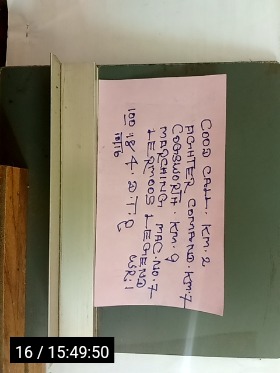 GOOD CALL. KM. 2
FIGHTER COMMAND. KM. 7
COGSWORTH. KM. 9
MARCHING MAC. NO. 7
LERMOOS LEGEND
WR. 1
100 : 84. D T P
16 / 15:49:50